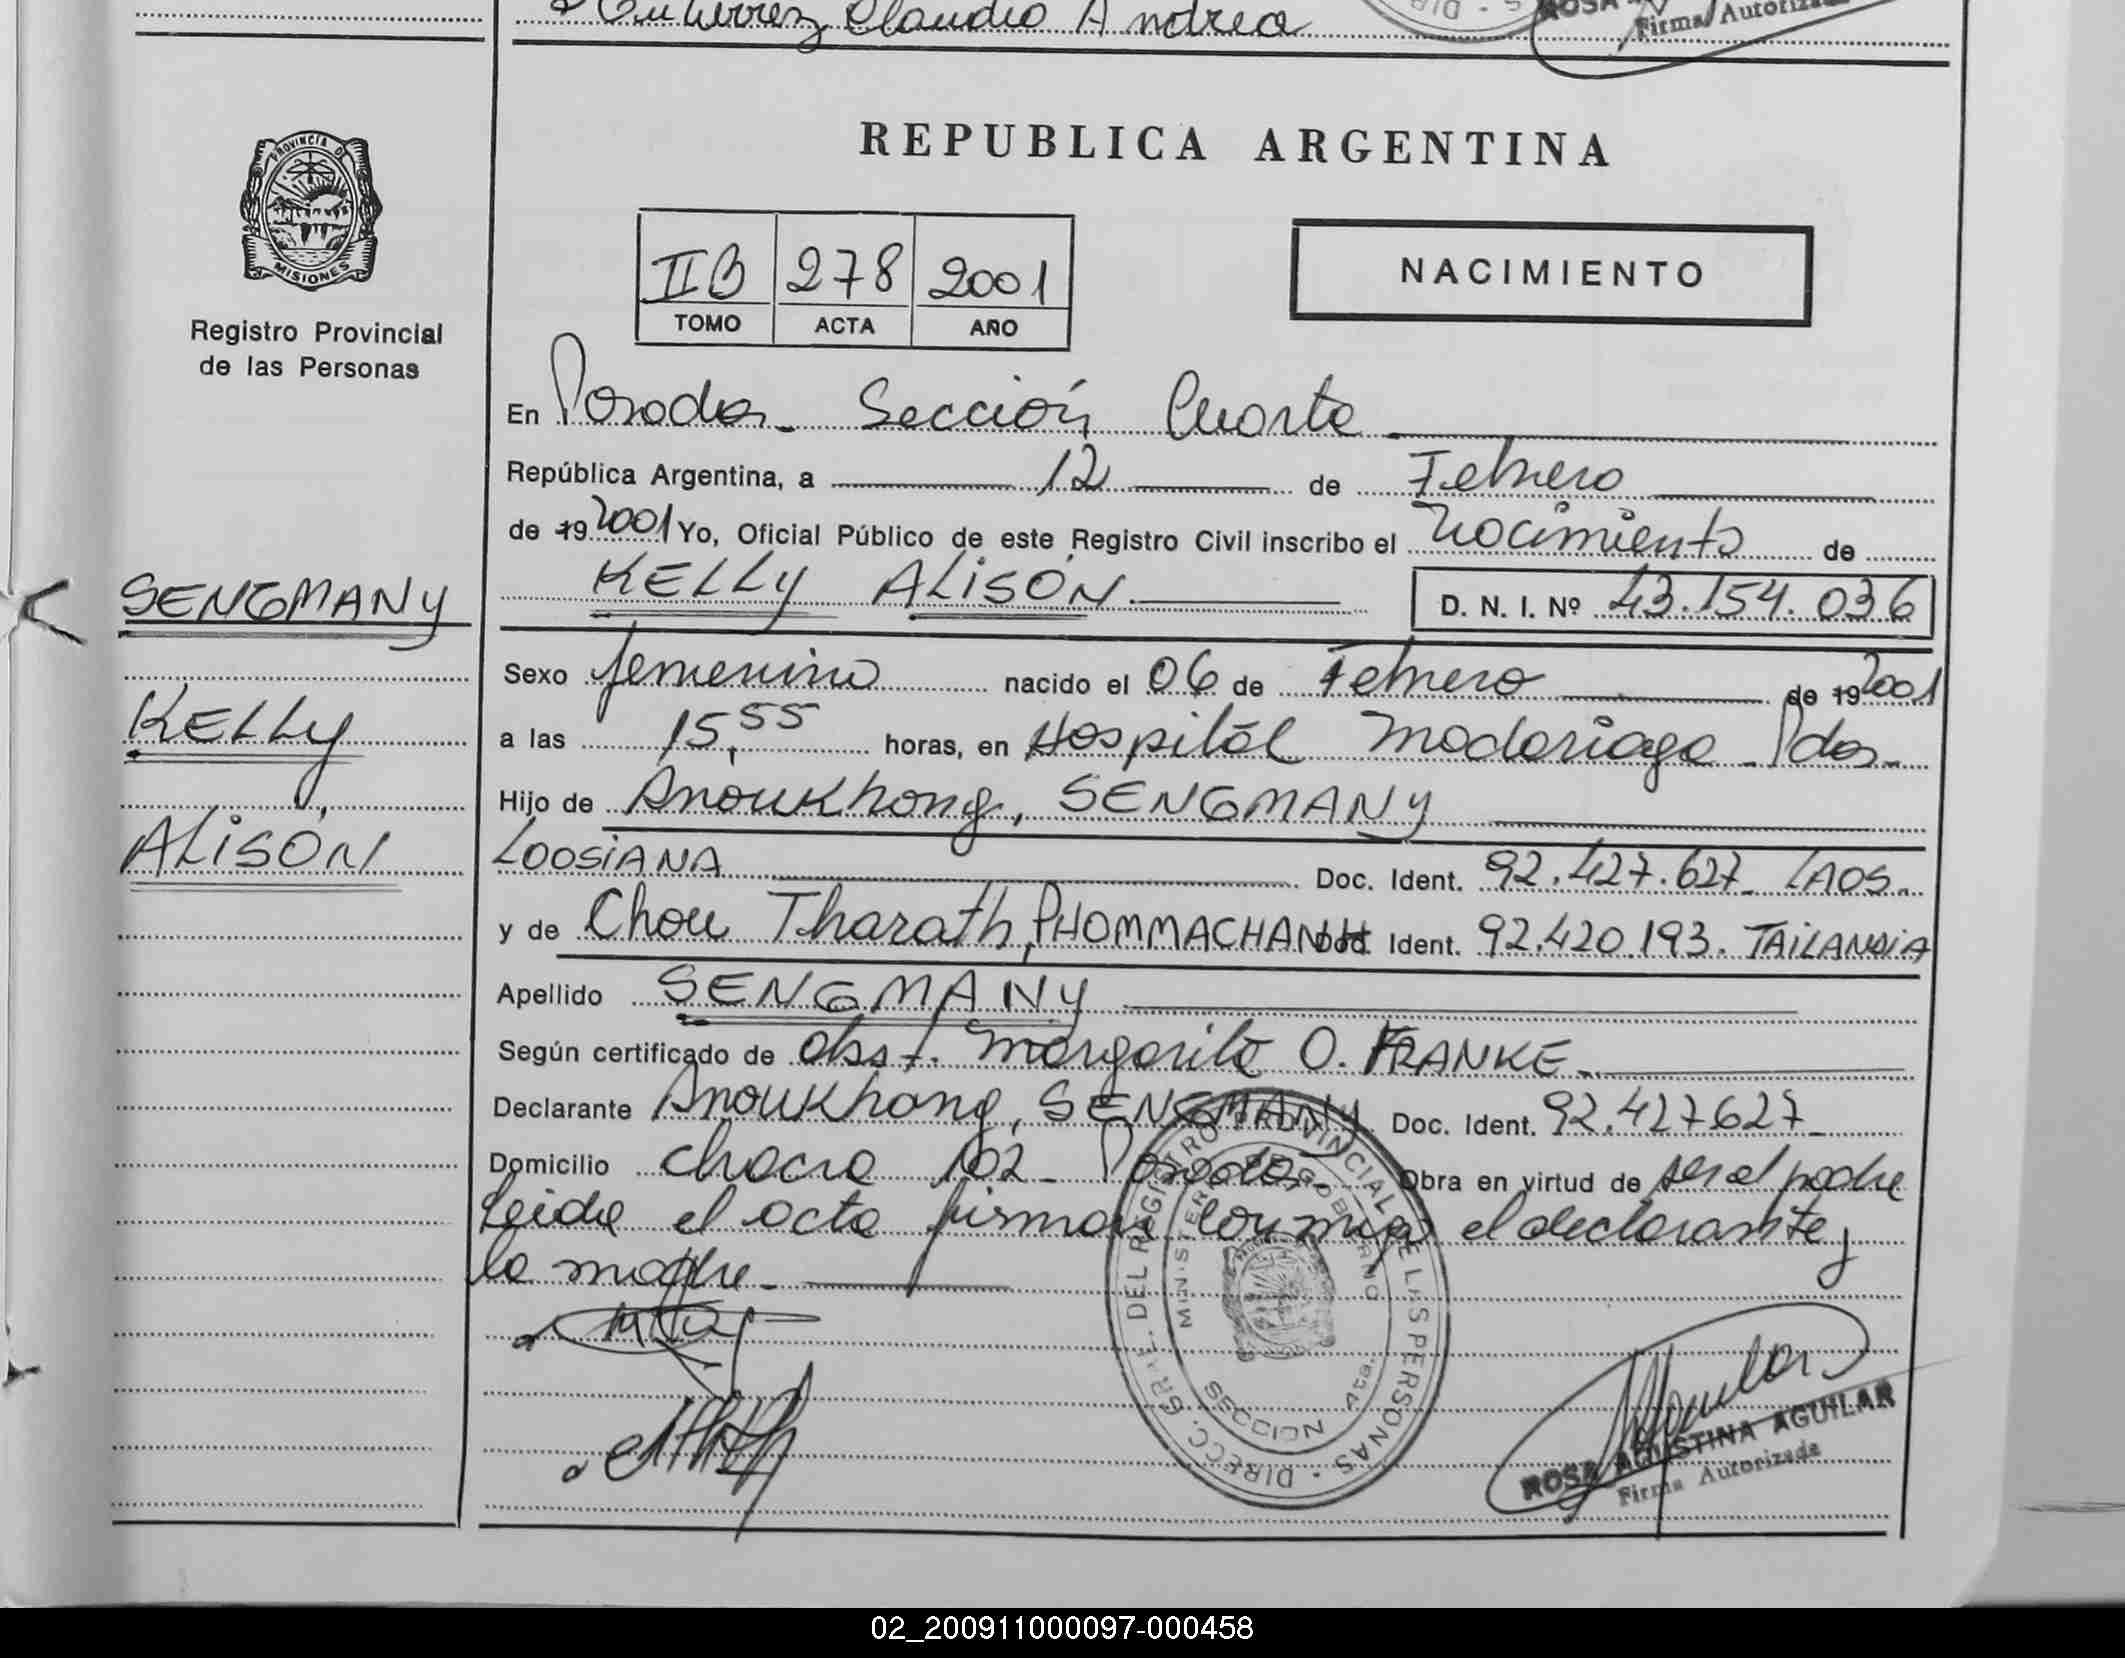 Gutierrez Claudio Andrea
Firma Autorizada
PROVINCIA DE
MISIONES
Registro Provincial
de las Personas
REPUBLICA ARGENTINA
IIB 278 2001
TOMO ACTA AÑO
NACIMIENTO
En Posadas - Sección Cuarta
República Argentina, a 12 de Febrero
de 19 2001 Yo, Oficial Público de este Registro Civil inscribo el Nacimiento de
KELLY ALISÓN D. N. I. Nº 43.154.036
SENGMANY
KELLY
ALISÓN
Sexo femenino nacido el 06 de Febrero de 19 2001
a las 15,55 horas, en Hospital Madariaga - Pdas -
Hijo de Anoukhong, SENGMANY
LOOSIANA Doc. Ident. 92.427.627 - LAOS -
y de Chou Tharath, PHOMMACHANH Doc. Ident. 92.420.193. TAILANDIA
Apellido SENGMANY
Según certificado de Obst. Margarita O. FRANKE -
Declarante Anoukhong, SENGMANY Doc. Ident. 92.427627 -
Domicilio chacra 102 - Posadas - Obra en virtud de ser el padre
Leída el acta firman conmigo el declarante y
la madre -
DIRECC. GRAL. DEL REGISTRO PROVINCIAL DE LAS PERSONAS
MINISTERIO DE GOBIERNO
SECCION 4ta.
Aguilar
ROSA AGUSTINA AGUILAR
Firma Autorizada
02_200911000097-000458